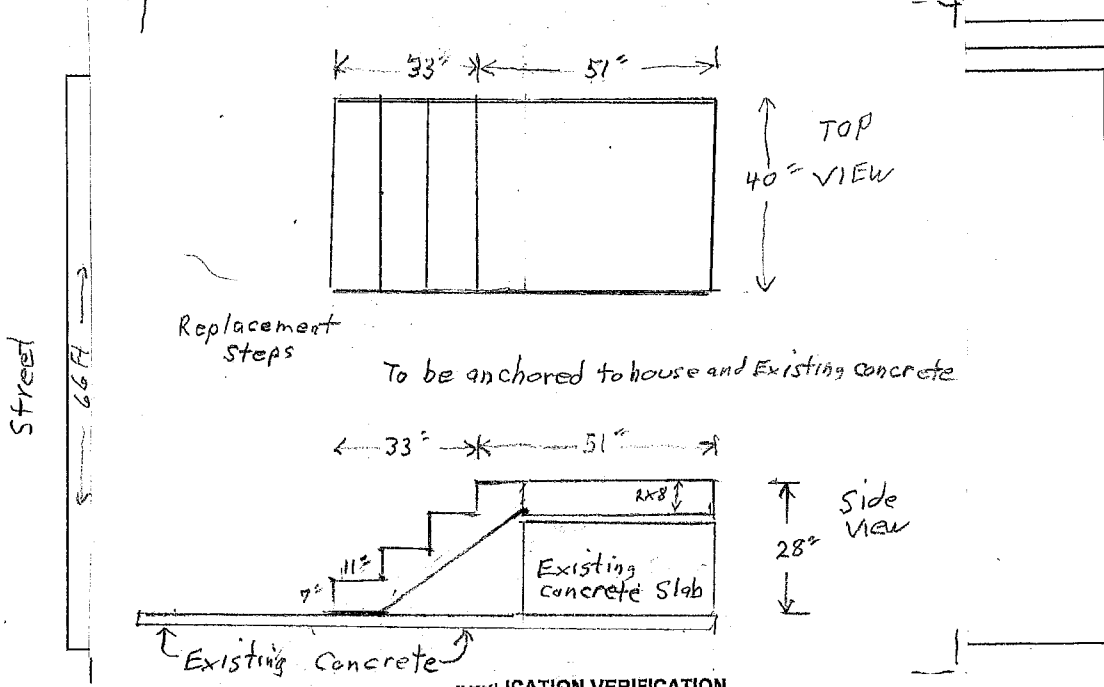 33" 51"
TOP
VIEW
40"
Replacement
Steps
To be anchored to house and Existing concrete
Street
66 ft
33" 51"
2x8
Side
View
28"
11"
7"
Existing
concrete Slab
Existing Concrete
APPLICATION VERIFICATION